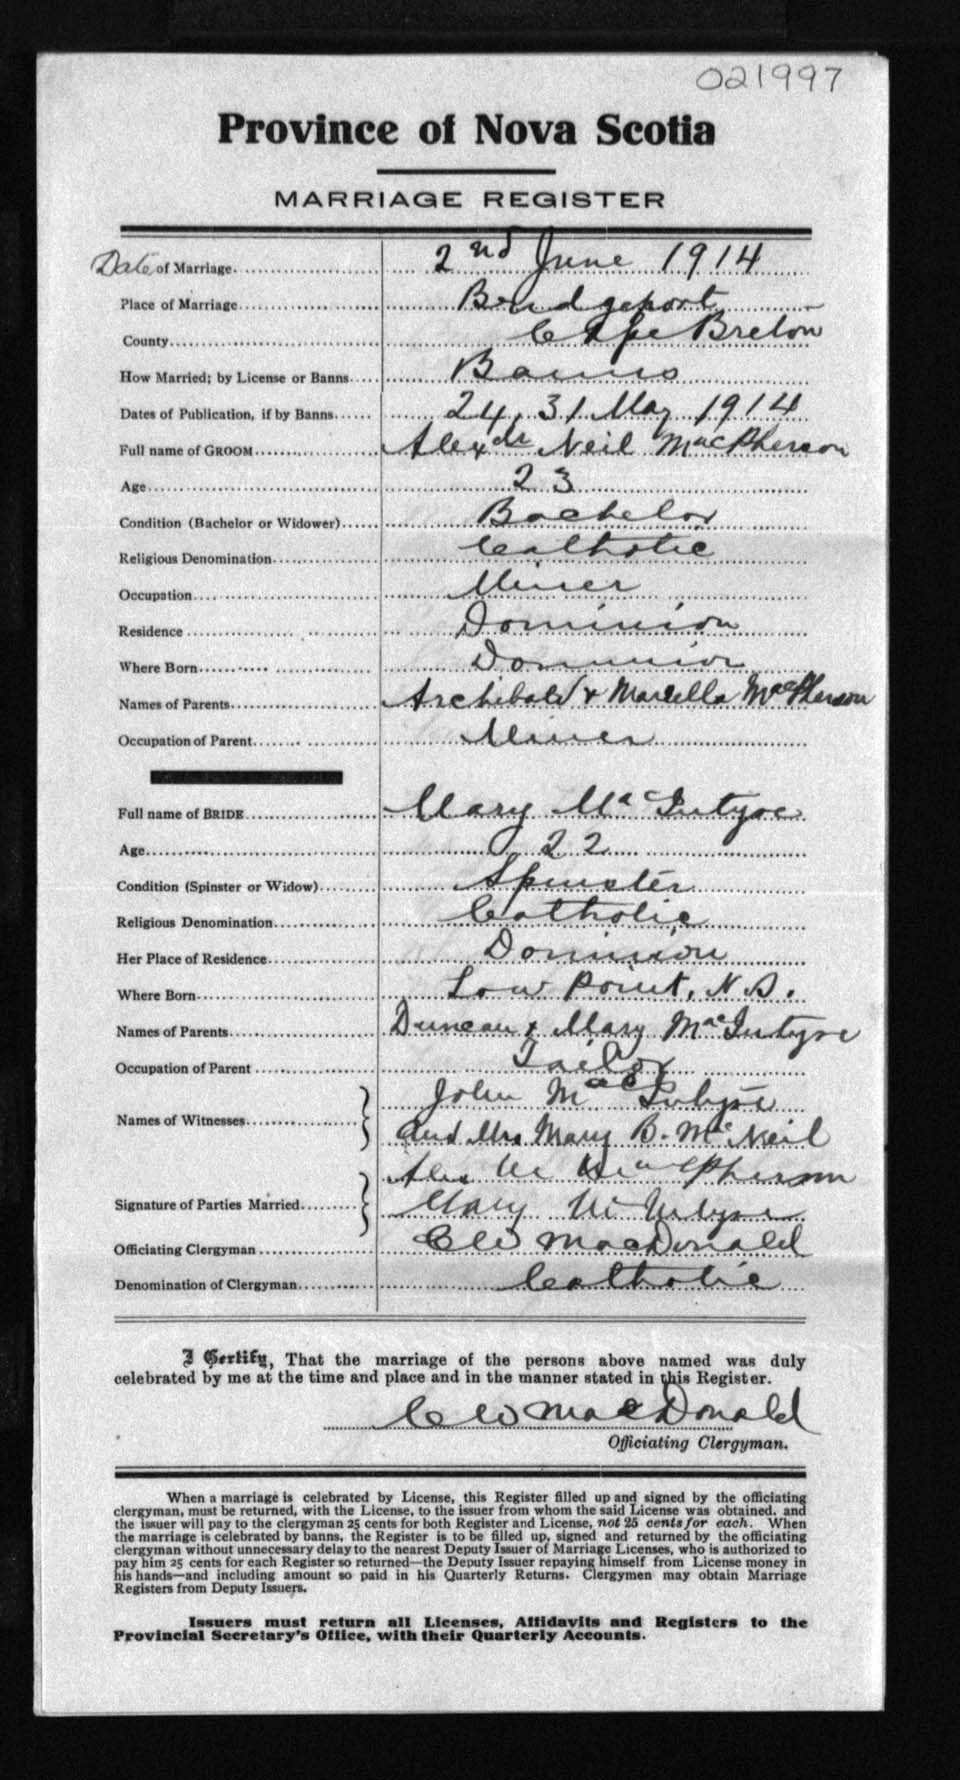 021997
Province of Nova Scotia
MARRIAGE REGISTER
Date of Marriage 2nd June 1914
Place of Marriage Bridgeport
County Cape Breton
How Married; by License or Banns Banns
Dates of Publication, if by Banns 24, 31 May 1914
Full name of GROOM Alexdr Neil MacPherson
Age 23
Condition (Bachelor or Widower) Bachelor
Religious Denomination Catholic
Occupation Miner
Residence Dominion
Where Born Dominion
Names of Parents Archibald & Marcella MacPherson
Occupation of Parent Miner
Full name of BRIDE Mary MacIntyre
Age 22
Condition (Spinster or Widow) Spinster
Religious Denomination Catholic
Her Place of Residence Dominion
Where Born Low Point, N.S.
Names of Parents Duncan & Mary MacIntyre
Occupation of Parent Tailor
Names of Witnesses John MacIntyre
and Mrs Mary B. McNeil
Signature of Parties Married Alex MacPherson
Mary McIntyre
Officiating Clergyman CW MacDonald
Denomination of Clergyman Catholic
I Certify, That the marriage of the persons above named was duly
celebrated by me at the time and place and in the manner stated in this Register.
CW MacDonald
Officiating Clergyman.
When a marriage is celebrated by License, this Register filled up and signed by the officiating
clergyman, must be returned, with the License, to the issuer from whom the said License was obtained. and
the issuer will pay to the clergyman 25 cents for both Register and License, not 25 cents for each. When
the marriage is celebrated by banns, the Register is to be filled up, signed and returned by the officiating
clergyman without unnecessary delay to the nearest Deputy Issuer of Marriage Licenses, who is authorized to
pay him 25 cents for each Register so returned—the Deputy Issuer repaying himself from License money in
his hands—and including amount so paid in his Quarterly Returns. Clergymen may obtain Marriage
Registers from Deputy Issuers.
Issuers must return all Licenses, Affidavits and Registers to the
Provincial Secretary's Office, with their Quarterly Accounts.